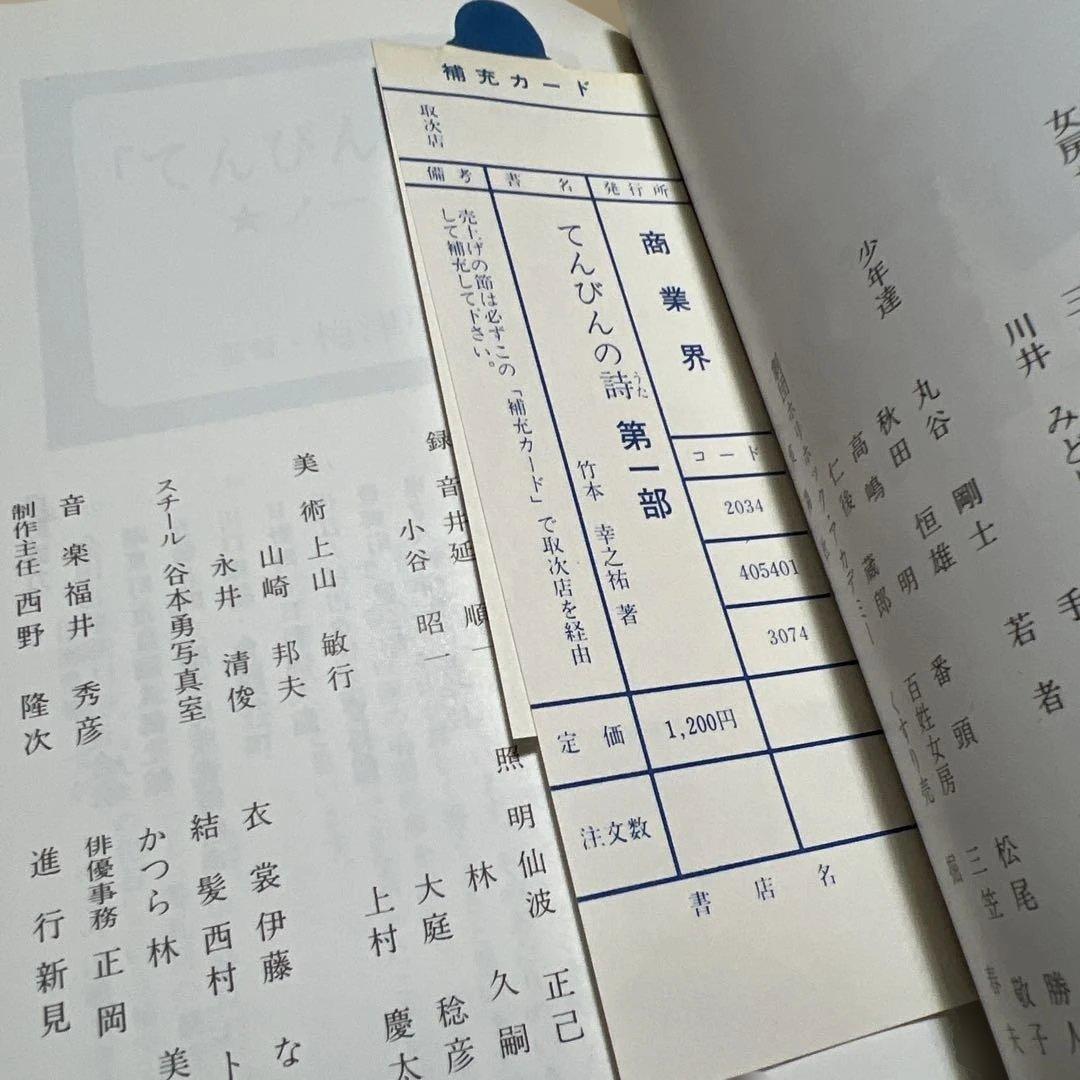 補充カード
取次店
発行所
商業界
コード
2034
405401
3074
書名
てんびんの詩 第一部
うた
竹本 幸之祐 著
備考
売上げの節は必ずこの「補充カード」で取次店を経由
して補充して下さい。
定価
1,200円
注文数
書店名
少年達
川井 みど
丸谷 剛士
秋田 恒雄
高嶋 明
仁後 蔵郎
若者
番頭
百姓女房
くすり売
松尾 勝人
三笠 敬子
春夫
録音 井延 順一
小谷 昭一
美術 上山 敏行
山崎 邦夫
永井 清俊
スチール 谷本勇写真室
音楽 福井 秀彦
制作主任 西野 隆次
照明 仙波 正己
林 久嗣
大庭 稔彦
上村 慶太
衣裳 伊藤 な
結髪 西村 ト
かつら 林 美
俳優事務 正岡
進行 新見